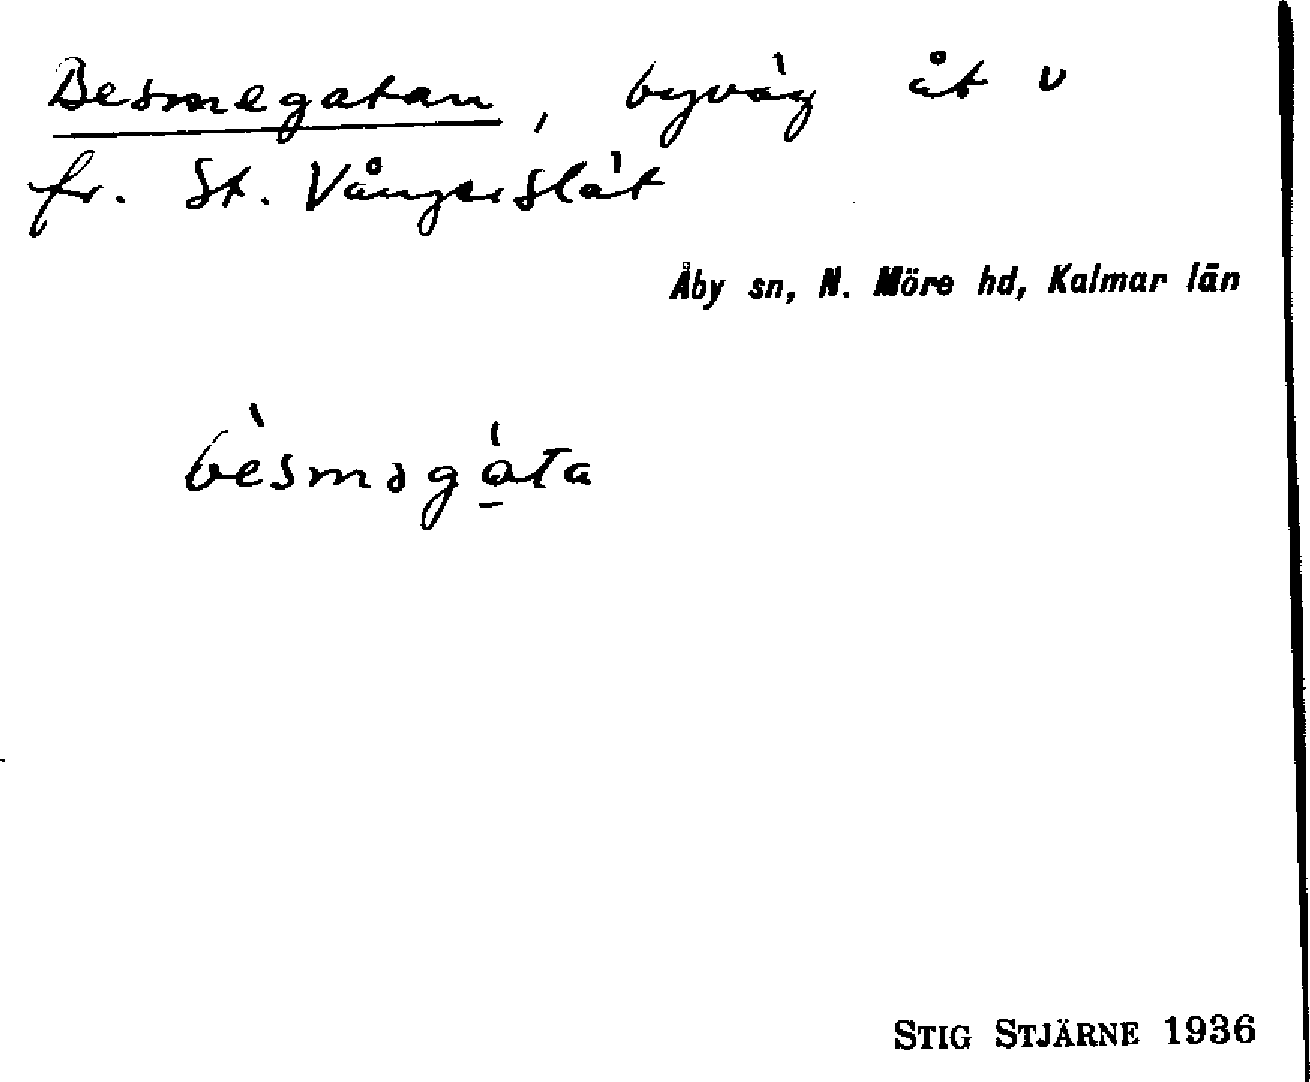 Besmegatan, byväg åt v
fr. St. Vångerslät
Åby sn, N. Möre hd, Kalmar län
bèsməgáta
STIG STJÄRNE 1936